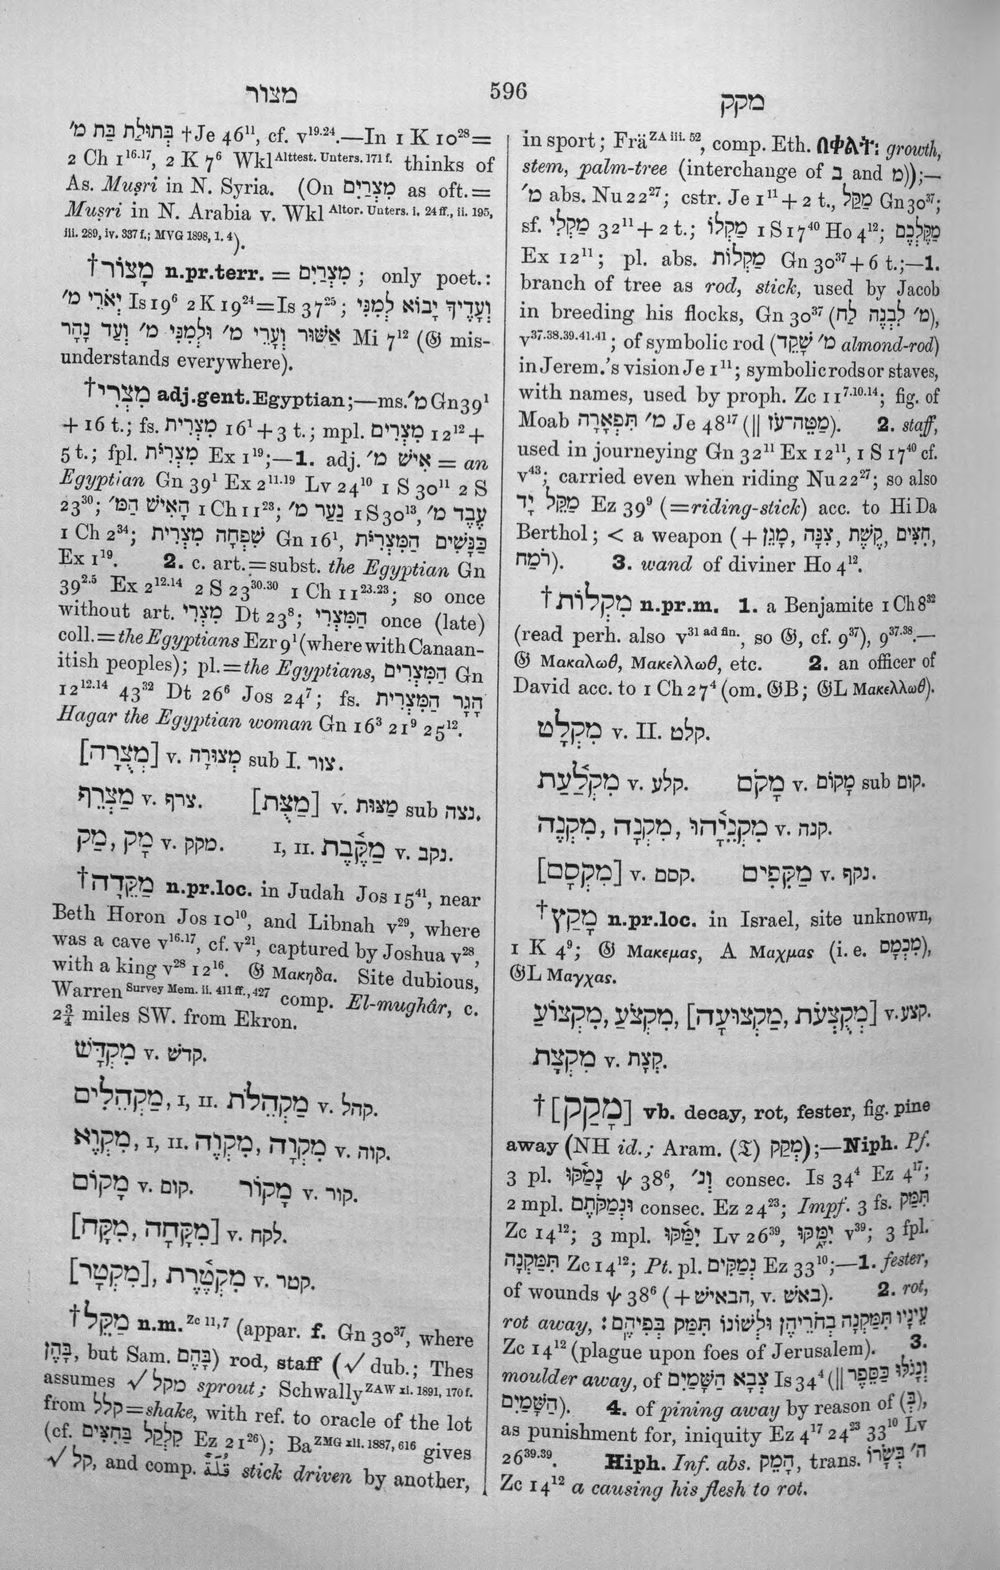 מצור
596
מקק
בְּתוּלַת בַּת מ׳ †Je 46¹¹, cf. v¹⁹·²⁴.—In 1 K 10²⁸=
2 Ch 1¹⁶·¹⁷, 2 K 7⁶ Wkl Alttest. Unters. 171 f. thinks of
As. Muṣri in N. Syria. (On מִצְרַיִם as oft.=
Muṣri in N. Arabia v. Wkl Altor. Unters. i. 24 ff., ii. 195,
iii. 289, iv. 337 f.; MVG 1898, 1. 4).
†מָצוֹר n.pr.terr. = מִצְרַיִם; only poet.:
יְאֹרֵי מ׳ Is 19⁶ 2 K 19²⁴=Is 37²⁵; וְעָדֶיךָ יָבוֹא לְמִנִּי
אַשּׁוּר וְעָרֵי מ׳ וּלְמִנִּי מ׳ וְעַד נָהָר Mi 7¹² (𝔊 mis-
understands everywhere).
†מִצְרִי adj.gent. Egyptian;—ms. מ׳ Gn 39¹
+ 16 t.; fs. מִצְרִית 16¹ + 3 t.; mpl. מִצְרִים 12¹² +
5 t.; fpl. מִצְרִיֹּת Ex 1¹⁹;—1. adj. אִישׁ מ׳ = an
Egyptian Gn 39¹ Ex 2¹¹·¹⁹ Lv 24¹⁰ 1 S 30¹¹ 2 S
23³⁰; הָאִישׁ הַמּ׳ 1 Ch 11²³; נַעַר מ׳ 1 S 30¹³, עֶבֶד מ׳
1 Ch 2³⁴; שִׁפְחָה מִצְרִית Gn 16¹, כַּנָּשִׁים הַמִּצְרִיֹּת
Ex 1¹⁹. 2. c. art.=subst. the Egyptian Gn
39²·⁵ Ex 2¹²·¹⁴ 2 S 23³⁰·³⁰ 1 Ch 11²³·²³; so once
without art. מִצְרִי Dt 23⁸; הַמִּצְרִי once (late)
coll.=the Egyptians Ezr 9¹ (where with Canaan-
itish peoples); pl.=the Egyptians, הַמִּצְרִים Gn
12¹²·¹⁴ 43³² Dt 26⁶ Jos 24⁷; fs. הָגָר הַמִּצְרִית
Hagar the Egyptian woman Gn 16³ 21⁹ 25¹².
[מְצֻרָה] v. מְצוּרָה sub I. צור.
מַצְרֵף v. צרף. [מַצֻּת] v. מַצּוּת sub נצה.
מָק, מַק v. מקק. I, II. מַקֶּבֶת v. נקב.
†מַקֵּדָה n.pr.loc. in Judah Jos 15⁴¹, near
Beth Horon Jos 10¹⁰, and Libnah v²⁹, where
was a cave v¹⁶·¹⁷, cf. v²¹, captured by Joshua v²⁸,
with a king v²⁸ 12¹⁶. 𝔊 Μακηδα. Site dubious,
Warren Survey Mem. ii. 411 ff., 427 comp. El-mughâr, c.
2¾ miles SW. from Ekron.
מִקְדָּשׁ v. קדשׁ.
מַקְהֵלִים, I, II. מַקְהֵלֹת v. קהל.
מִקְוֵא, I, II. מִקְוֶה, מִקְוָה v. קוה.
מָקוֹם v. קום. מָקוֹר v. קור.
[מִקָּח, מִקָּחָה] v. לקח.
[מִקְטָר], מִקְטֶרֶת v. קטר.
†מַקֵּל n.m. Zc 11, 7 (appar. f. Gn 30³⁷, where
בָּהֵן, but Sam. בָּהֶם) rod, staff (√ dub.; Thes
assumes √ מקל sprout; Schwally ZAW xi. 1891, 170 f.
from קלל=shake, with ref. to oracle of the lot
(cf. קִלְקַל בַּחִצִּים Ez 21²⁶); Ba ZMG xli. 1887, 616 gives
√ קל, and comp. قُلَّةٌ stick driven by another,
in sport; Frä ZA iii. 52, comp. Eth. በቀልት፡ growth,
stem, palm-tree (interchange of ב and מ));—
מ׳ abs. Nu 22²⁷; cstr. Je 1¹¹ + 2 t., מַקַּל Gn 30³⁷;
sf. מַקְלִי 32¹¹ + 2 t.; מַקְלוֹ 1 S 17⁴⁰ Ho 4¹²; מַקֶּלְכֶם
Ex 12¹¹; pl. abs. מַקְלוֹת Gn 30³⁷ + 6 t.;—1.
branch of tree as rod, stick, used by Jacob
in breeding his flocks, Gn 30³⁷ (מ׳ לִבְנֶה לַח),
v³⁷·³⁸·³⁹·⁴¹·⁴¹; of symbolic rod (מ׳ שָׁקֵד almond-rod)
in Jerem.'s vision Je 1¹¹; symbolic rods or staves,
with names, used by proph. Zc 11⁷·¹⁰·¹⁴; fig. of
Moab מ׳ תִּפְאָרָה Je 48¹⁷ (‖ מַטֵּה־עֹז). 2. staff,
used in journeying Gn 32¹¹ Ex 12¹¹, 1 S 17⁴⁰ cf.
v⁴³; carried even when riding Nu 22²⁷; so also
מַקֵּל יָד Ez 39⁹ (=riding-stick) acc. to Hi Da
Berthol; < a weapon (+ מָגֵן, צִנָּה, קֶשֶׁת, חִצִּים,
רֹמַח). 3. wand of diviner Ho 4¹².
†מִקְלוֹת n.pr.m. 1. a Benjamite 1 Ch 8³²
(read perh. also v³¹ ad fin., so 𝔊, cf. 9³⁷), 9³⁷·³⁸.—
𝔊 Μακαλωθ, Μακελλωθ, etc. 2. an officer of
David acc. to 1 Ch 27⁴ (om. 𝔊B; 𝔊L Μακελλωθ).
מִקְלָט v. II. קלט.
מִקְלַעַת v. קלע. מָקֹם v. מָקוֹם sub קום.
מִקְנֶה, מִקְנָה, מִקְנֵיָהוּ v. קנה.
[מִקְסָם] v. קסם. מַקִּפִים v. נקף.
†מָקַץ n.pr.loc. in Israel, site unknown,
1 K 4⁹; 𝔊 Μακεμας, A Μαχμας (i. e. מִכְמָס),
𝔊L Μαγχας.
מִקְצוֹעַ, מִקְצֹעַ, [מַקְצוּעָה, מְקֻצְעֹת] v. קצע.
מִקְצָת v. קְצָת.
†[מָקַק] vb. decay, rot, fester, fig. pine
away (NH id.; Aram. (𝔗) מְקַק);—Niph. Pf.
3 pl. נָמַקּוּ ψ 38⁶, וְנ׳ consec. Is 34⁴ Ez 4¹⁷;
2 mpl. וּנְמַקֹּתֶם consec. Ez 24²³; Impf. 3 fs. תִּמַּק
Zc 14¹²; 3 mpl. יִמַּקּוּ Lv 26³⁹, יִמָּקּוּ v³⁹; 3 fpl.
תִּמַּקְנָה Zc 14¹²; Pt. pl. נְמַקִּים Ez 33¹⁰;—1. fester,
of wounds ψ 38⁶ (+ הבאישׁ, v. באשׁ). 2. rot,
rot away, עֵינָיו תִּמַּקְנָה בְחֹרֵיהֶן וּלְשׁוֹנוֹ תִּמַּק בְּפִיהֶם׃
Zc 14¹² (plague upon foes of Jerusalem). 3.
moulder away, of צְבָא הַשָּׁמַיִם Is 34⁴ (‖ וְנָגֹלּוּ כַסֵּפֶר
הַשָּׁמַיִם). 4. of pining away by reason of (בְּ),
as punishment for, iniquity Ez 4¹⁷ 24²³ 33¹⁰ Lv
26³⁹·³⁹. Hiph. Inf. abs. הָמֵק, trans. ה׳ בְּשָׂרוֹ
Zc 14¹² a causing his flesh to rot.